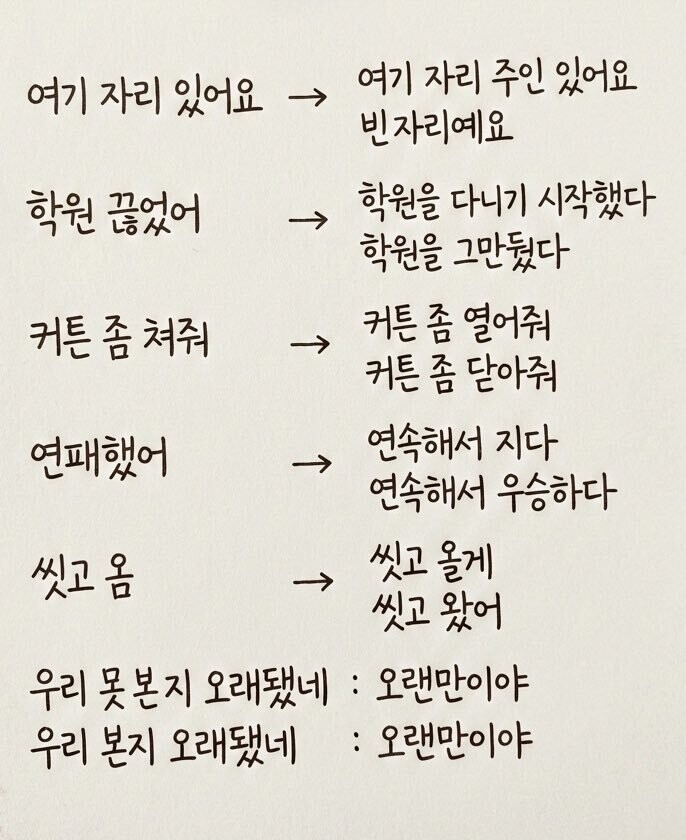 여기 자리 있어요 → 여기 자리 주인 있어요
빈자리예요
학원 끊었어 → 학원을 다니기 시작했다
학원을 그만뒀다
커튼 좀 쳐줘 → 커튼 좀 열어줘
커튼 좀 닫아줘
연패했어 → 연속해서 지다
연속해서 우승하다
씻고 옴 → 씻고 올게
씻고 왔어
우리 못 본지 오래됐네 : 오랜만이야
우리 본지 오래됐네 : 오랜만이야